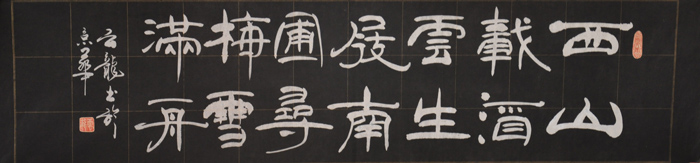 西山
載酒
雲生
屐南
圃尋
梅雪
滿舟
云龍書於
京華